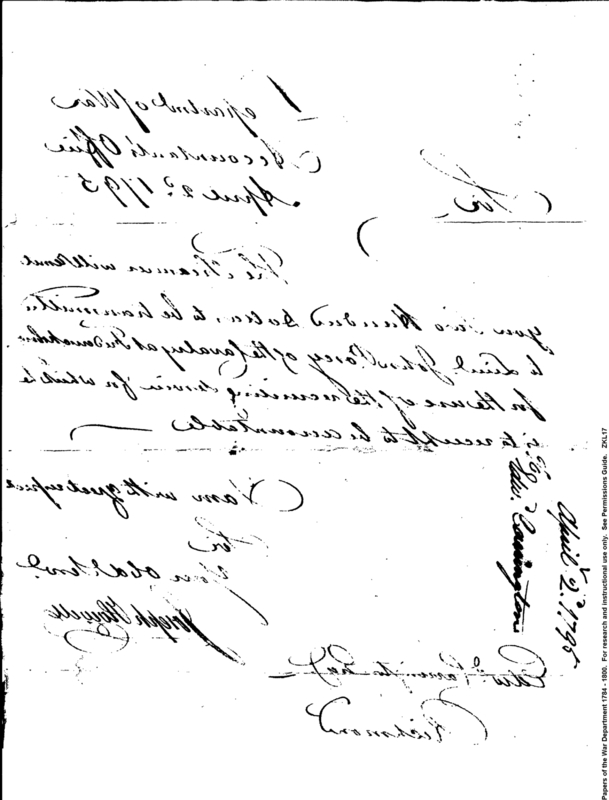 Department of War
Accountant's Office
April 2d. 1795
Sir
The Treasurer will remit
you Two Hundred Dollars, to be transmitted
to Lieut John Posey of the Cavalry at
for the use of the recruiting service for which he
is to receipt & to be accountable
I am with great respect
Sir
Your Obd. Servt.
Joseph Howell
Edwd. Carrington Esq
Richmond
Edwd. Carrington
April 2d. 1795
Papers of the War Department 1784 - 1800. For research and instructional use only. See Permissions Guide. ZKL17